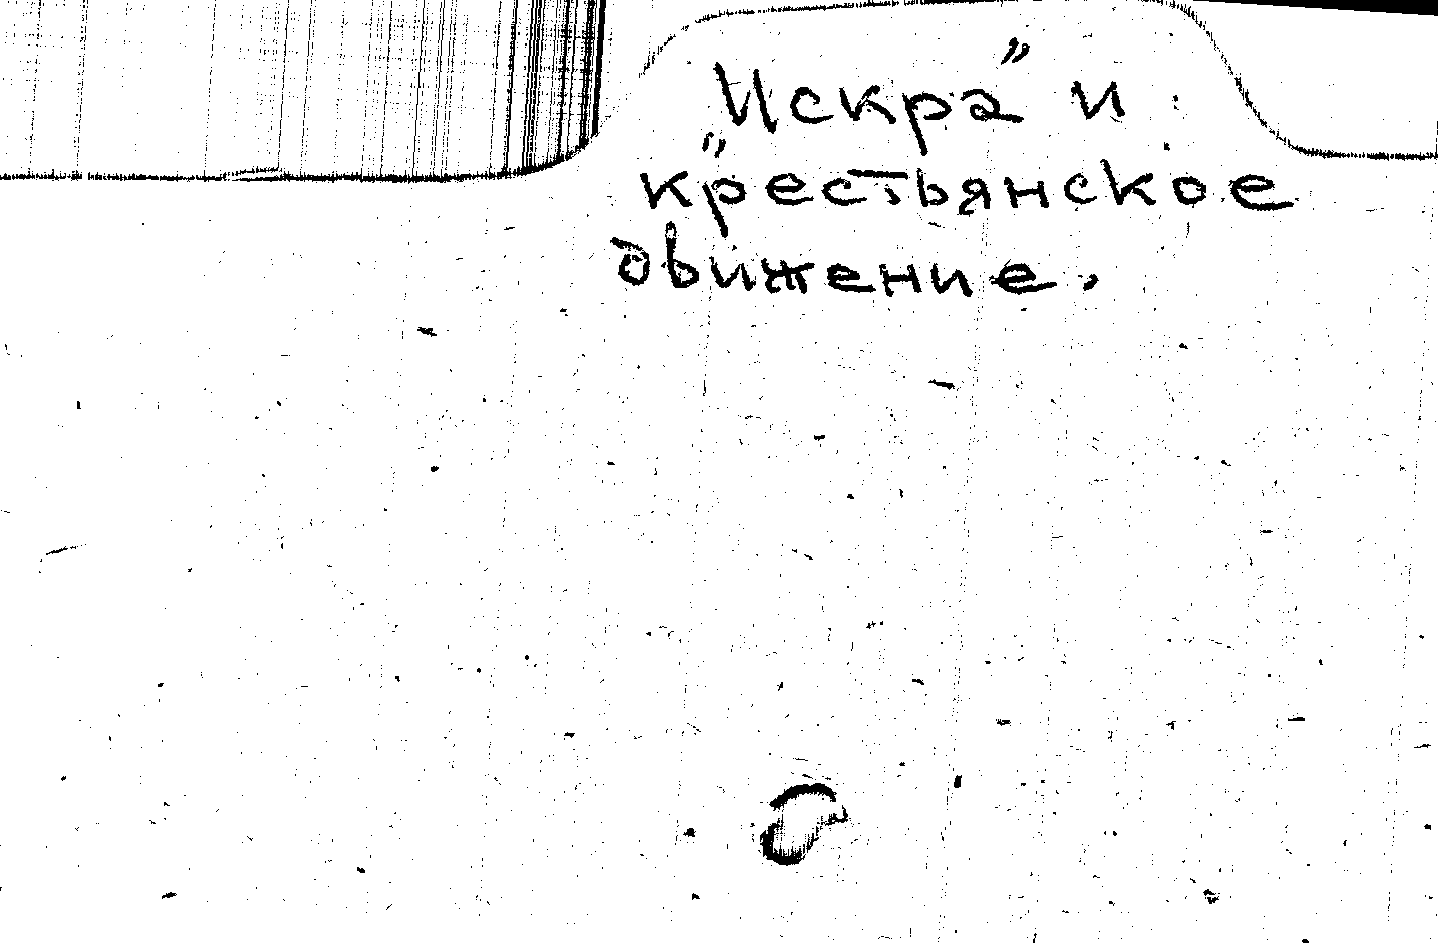 „Искра” и
крестьянское
движение.